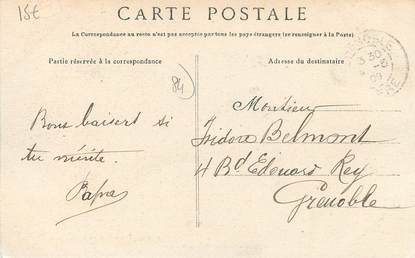 15€
CARTE POSTALE
La Correspondance au recto n'est pas acceptée par tous les pays étrangers (se renseigner à la Poste)
Partie réservée à la correspondance
Adresse du destinataire
84
Bons baisers si
tu mérite.
Papa
Monsieur
Isidore Belmont
4 Bd Edouard Rey
Grenoble